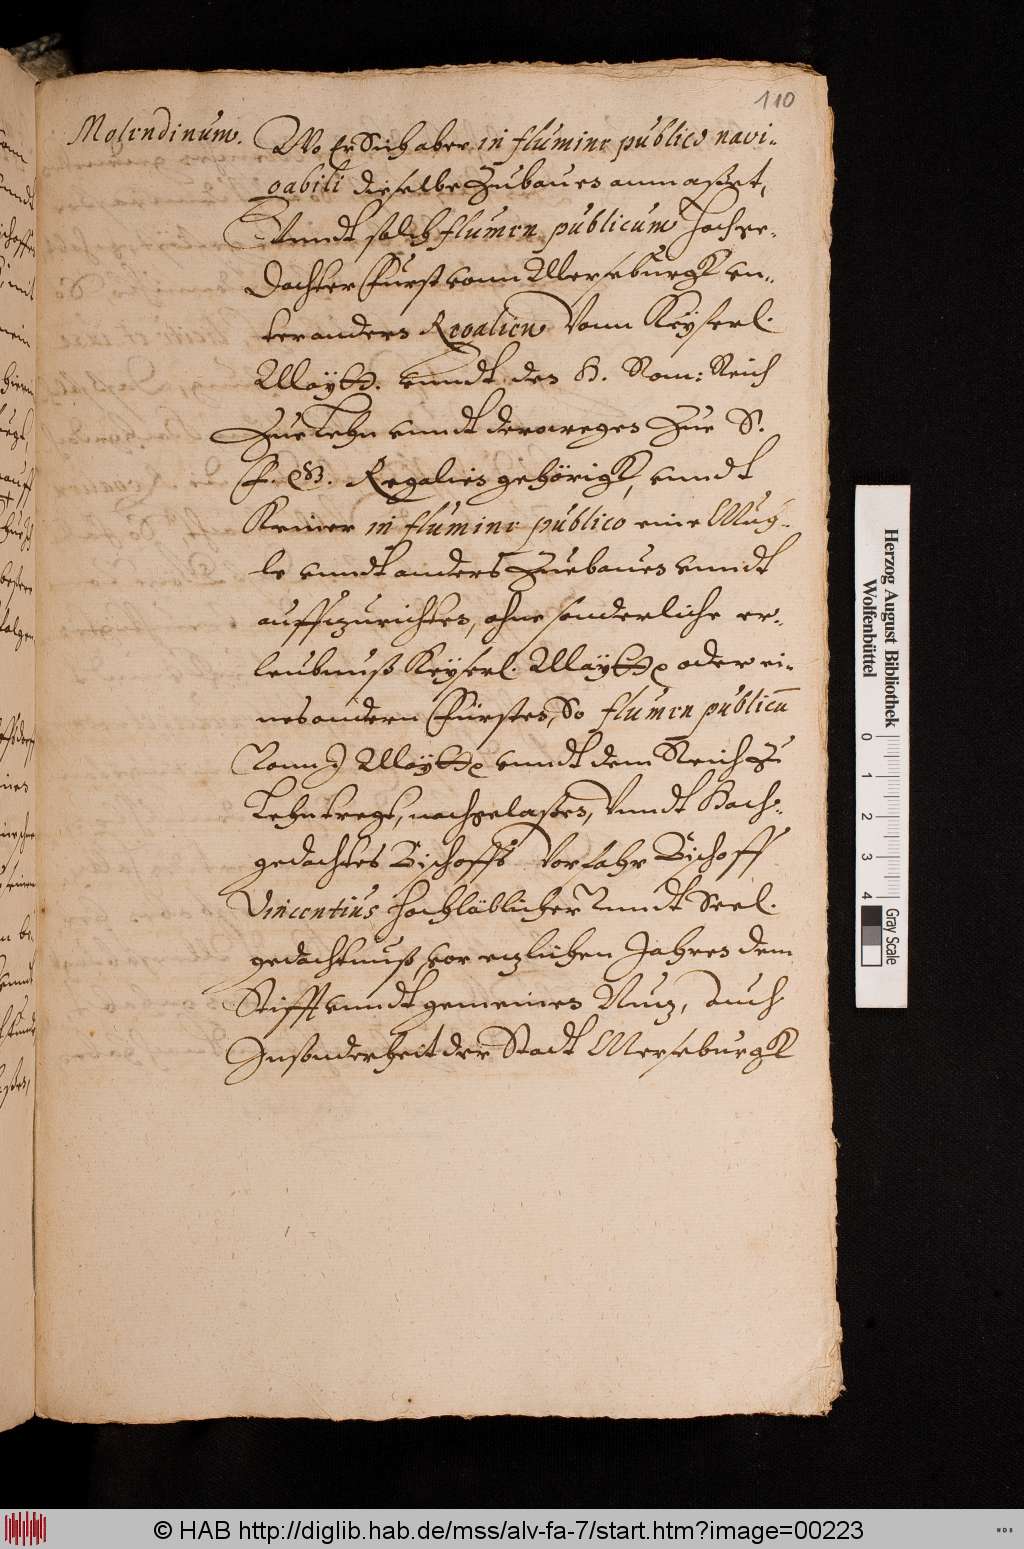 110
Molendinum.
Wo Er Sich aber in flumine publico navi-
gabili dieselbe Zubauen anmasset,
Vnndt solch flumen publicum hochge-
dachter Fürst vonn Merseburgk vn-
ter anders Regalien Vonn Keyserl.
Maytt. vnndt des H. Rom: Reich
Zue Lehn vnndt derowegen Zue S.
F. G. Regalien gehörigk, vnndt
Keiner in flumine publico eine Müh-
le vnndt anders Zuebauen vnndt
auffzurichten, ohne sonderliche er-
leubnuß Keyserl. Maytt. oder ei-
nes andern Fürsten, So flumen publicū
Vonn Maytt. vnndt dem Reich Zu
Lehn tregt, nachgelassen, Vnndt Hoch-
gedachtes Bischoffs Vorfahr Bischoff
Vincentius hochlöblicher Vnndt Seel.
gedechtnuß, vor etzlichen Jahren dem
Stifft vnndt gemeinen Nutz, Auch
Insonderheit der Stadt Merseburgk
Herzog August Bibliothek
Wolfenbüttel
0 1 2 3 4
Gray Scale
© HAB http://diglib.hab.de/mss/alv-fa-7/start.htm?image=00223